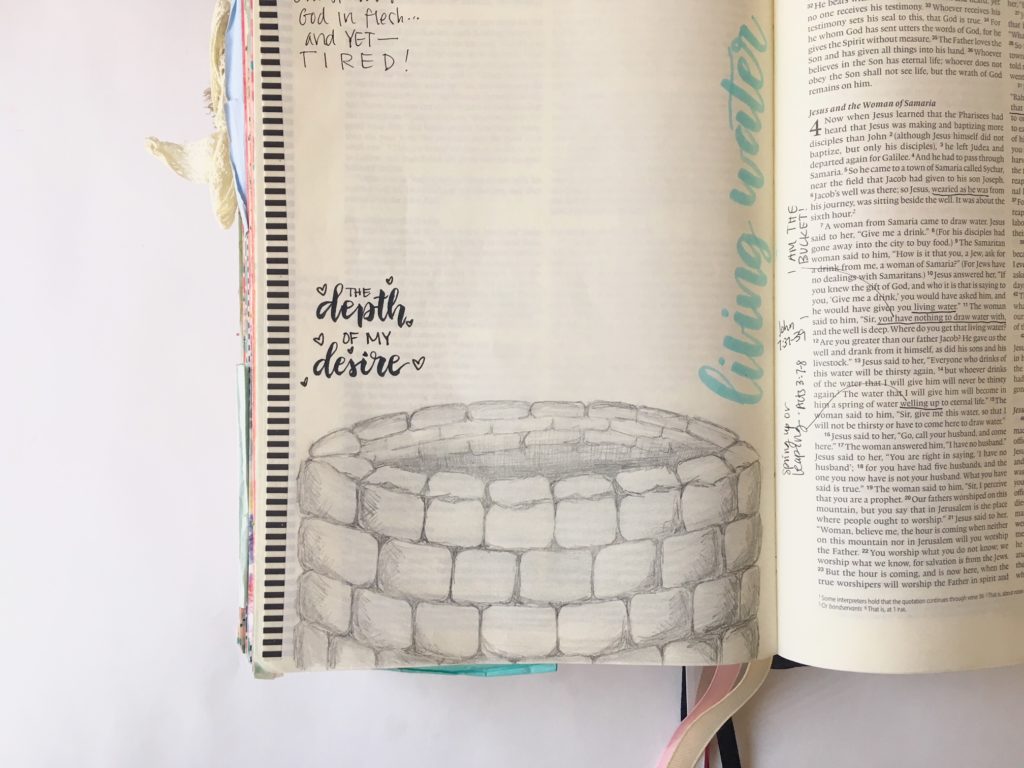 God in flesh...
and YET—
TIRED!
THE
depth
OF MY
desire
living water
I AM THE
BUCKET!
John
7:37-39
spring up or
leaping... Acts 3:7-8
32 He bears
no one receives his testimony. 33 Whoever receives his
testimony sets his seal to this, that God is true. 34 For
he whom God has sent utters the words of God, for he
gives the Spirit without measure. 35 The Father loves the
Son and has given all things into his hand. 36 Whoever
believes in the Son has eternal life; whoever does not
obey the Son shall not see life, but the wrath of God
remains on him.
Jesus and the Woman of Samaria
4 Now when Jesus learned that the Pharisees had
heard that Jesus was making and baptizing more
disciples than John 2 (although Jesus himself did not
baptize, but only his disciples), 3 he left Judea and
departed again for Galilee. 4 And he had to pass through
Samaria. 5 So he came to a town of Samaria called Sychar,
near the field that Jacob had given to his son Joseph.
6 Jacob's well was there; so Jesus, wearied as he was from
his journey, was sitting beside the well. It was about the
sixth hour.2
7 A woman from Samaria came to draw water. Jesus
said to her, "Give me a drink." 8 (For his disciples had
gone away into the city to buy food.) 9 The Samaritan
woman said to him, "How is it that you, a Jew, ask for
a drink from me, a woman of Samaria?" (For Jews have
no dealings with Samaritans.) 10 Jesus answered her, "If
you knew the gift of God, and who it is that is saying to
you, 'Give me a drink,' you would have asked him, and
he would have given you living water." 11 The woman
said to him, "Sir, you have nothing to draw water with,
and the well is deep. Where do you get that living water?
12 Are you greater than our father Jacob? He gave us the
well and drank from it himself, as did his sons and his
livestock." 13 Jesus said to her, "Everyone who drinks of
this water will be thirsty again, 14 but whoever drinks
of the water that I will give him will never be thirsty
again. The water that I will give him will become in
him a spring of water welling up to eternal life." 15 The
woman said to him, "Sir, give me this water, so that I
will not be thirsty or have to come here to draw water."
16 Jesus said to her, "Go, call your husband, and come
here." 17 The woman answered him, "I have no husband."
Jesus said to her, "You are right in saying, 'I have no
husband'; 18 for you have had five husbands, and the
one you now have is not your husband. What you have
said is true." 19 The woman said to him, "Sir, I perceive
that you are a prophet. 20 Our fathers worshiped on this
mountain, but you say that in Jerusalem is the place
where people ought to worship." 21 Jesus said to her,
"Woman, believe me, the hour is coming when neither
on this mountain nor in Jerusalem will you worship
the Father. 22 You worship what you do not know; we
worship what we know, for salvation is from the Jews.
23 But the hour is coming, and is now here, when the
true worshipers will worship the Father in spirit and
1 Some interpreters hold that the quotation continues through verse 36 2 That is, about noon
5 Or bondservants 6 That is, at 1 P.M.